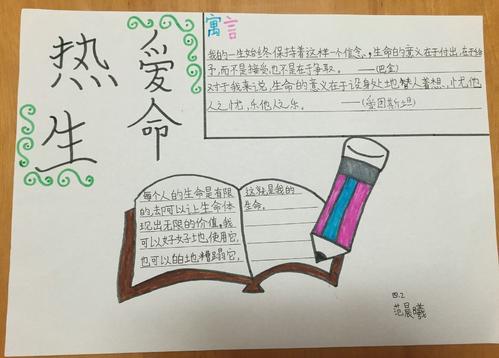 热爱
生命
寓言
我的一生始终保持着这样一个信念，生命的意义在于付出，在于给
予，而不是接受，也不是在于争取。——（巴金）
对于我来说，生命的意义在于设身处地替人着想，忧他
人之忧，乐他人之乐。——（爱因斯坦）
每个人的生命是有限
的，却可以让生命体
现出无限的价值。我
可以好好地使用它，
也可以白白地糟蹋它，
这就是我的
生命。
四.2
范晨曦